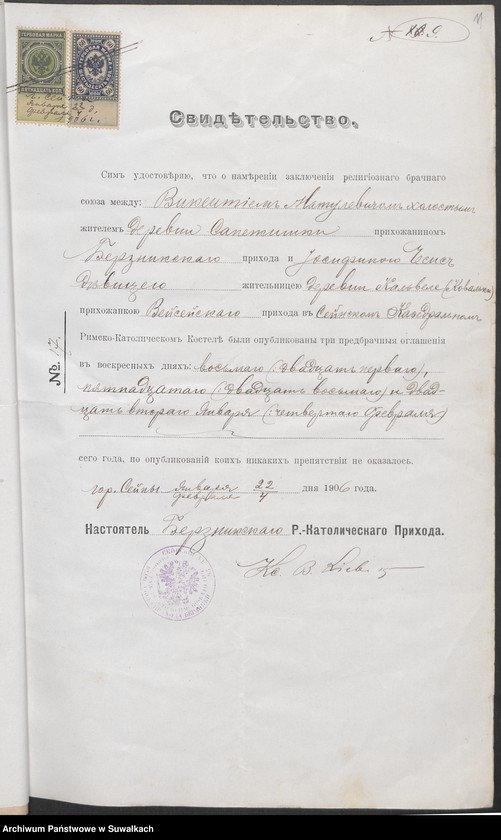 11
№ 18. 9.
ГЕРБОВАЯ МАРКА
ПЯТНАДЦАТЬ КОП.
60
Января 22 д.
Февраля 4
1906 г.
Свидѣтельство.
Симъ удостовѣряю, что о намѣреніи заключенія религіознаго брачнаго
союза между: Викентіемъ Матулевичомъ холостымъ
жителемъ деревни Сапетишки прихожаниномъ
Берзникскаго прихода и Іосифиною Чесисъ
дѣвицею жительницею деревни
прихожанкою Вейсейскаго прихода въ Сейнскомъ Каѳдральномъ
Римско-Католическомъ Костелѣ были опубликованы три предбрачныя оглашенія
въ воскресныхъ дняхъ: восьмаго (:двадцать перваго),
пятнадцатаго (:двадцать восьмаго) и двад-
цать втораго Января (:четвертаго Февраля)
сего года, по опубликованіи коихъ никакихъ препятствій не оказалось.
гор. Сейны Января 22 дня 1906 года.
Февраля 4
№ 17.
Настоятель Берзникскаго Р.-Католическаго Прихода.
Кс. В.
Archiwum Państwowe w Suwałkach